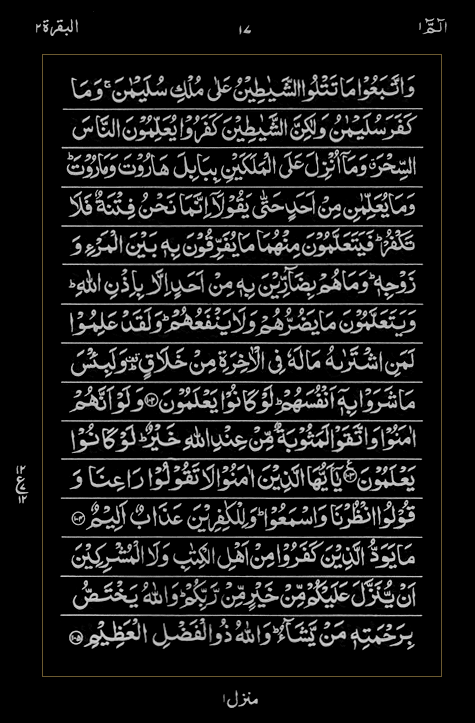 الٓمّٓ ۱ ۱۷ البقرة ۲
وَاتَّبَعُوْا مَا تَتْلُوا الشَّيٰطِيْنُ عَلٰى مُلْكِ سُلَيْمٰنَ ۚ وَمَا
كَفَرَ سُلَيْمٰنُ وَلٰكِنَّ الشَّيٰطِيْنَ كَفَرُوْا يُعَلِّمُوْنَ النَّاسَ
السِّحْرَ ۗ وَمَآ اُنْزِلَ عَلَى الْمَلَكَيْنِ بِبَابِلَ هَارُوْتَ وَمَارُوْتَ ؕ
وَمَا يُعَلِّمٰنِ مِنْ اَحَدٍ حَتّٰى يَقُوْلَاۤ اِنَّمَا نَحْنُ فِتْنَةٌ فَلَا
تَكْفُرْ ؕ فَيَتَعَلَّمُوْنَ مِنْهُمَا مَا يُفَرِّقُوْنَ بِهٖ بَيْنَ الْمَرْءِ وَ
زَوْجِهٖ ؕ وَمَا هُمْ بِضَآرِّيْنَ بِهٖ مِنْ اَحَدٍ اِلَّا بِاِذْنِ اللّٰهِ ؕ
وَيَتَعَلَّمُوْنَ مَا يَضُرُّهُمْ وَلَا يَنْفَعُهُمْ ؕ وَلَقَدْ عَلِمُوْا
لَمَنِ اشْتَرٰىهُ مَا لَهٗ فِى الْاٰخِرَةِ مِنْ خَلَاقٍ ؕ وَلَبِئْسَ
مَا شَرَوْا بِهٖۤ اَنْفُسَهُمْ ؕ لَوْ كَانُوْا يَعْلَمُوْنَ ۝۱۰۲ وَلَوْ اَنَّهُمْ
اٰمَنُوْا وَاتَّقَوْا لَمَثُوْبَةٌ مِّنْ عِنْدِ اللّٰهِ خَيْرٌ ؕ لَوْ كَانُوْا
يَعْلَمُوْنَ ۝۱۰۳ يٰۤاَيُّهَا الَّذِيْنَ اٰمَنُوْا لَا تَقُوْلُوْا رَاعِنَا وَ
۱۲
ع
۱۲
قُوْلُوا انْظُرْنَا وَاسْمَعُوْا ؕ وَلِلْكٰفِرِيْنَ عَذَابٌ اَلِيْمٌ ۝۱۰۴
مَا يَوَدُّ الَّذِيْنَ كَفَرُوْا مِنْ اَهْلِ الْكِتٰبِ وَلَا الْمُشْرِكِيْنَ
اَنْ يُّنَزَّلَ عَلَيْكُمْ مِّنْ خَيْرٍ مِّنْ رَّبِّكُمْ ؕ وَاللّٰهُ يَخْتَصُّ
بِرَحْمَتِهٖ مَنْ يَّشَآءُ ؕ وَاللّٰهُ ذُو الْفَضْلِ الْعَظِيْمِ ۝۱۰۵
منزل ۱